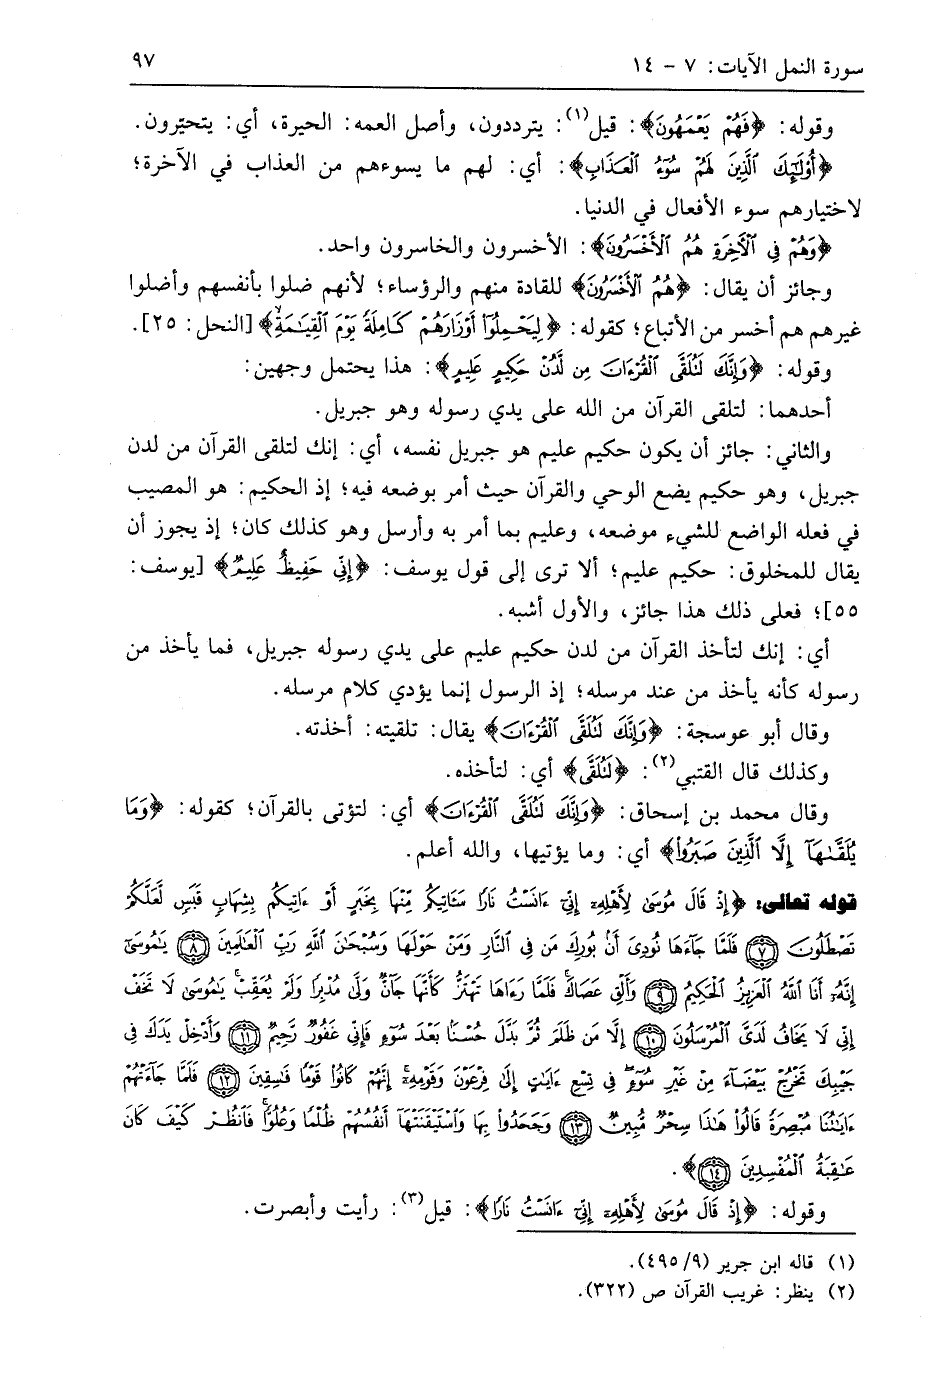 سورة النمل الآيات: ٧ - ١٤
٩٧
وقوله: ﴿فَهُمْ يَعْمَهُونَ﴾: قيل(١): يترددون، وأصل العمه: الحيرة، أي: يتحيّرون.
﴿أُوْلَٰٓئِكَ ٱلَّذِينَ لَهُمْ سُوٓءُ ٱلْعَذَابِ﴾: أي: لهم ما يسوءهم من العذاب في الآخرة؛
لاختيارهم سوء الأفعال في الدنيا.
﴿وَهُمْ فِي ٱلْأَخِرَةِ هُمُ ٱلْأَخْسَرُونَ﴾: الأخسرون والخاسرون واحد.
وجائز أن يقال: ﴿هُمُ ٱلْأَخْسَرُونَ﴾ للقادة منهم والرؤساء؛ لأنهم ضلوا بأنفسهم وأضلوا
غيرهم هم أخسر من الأتباع؛ كقوله: ﴿لِيَحْمِلُوٓاْ أَوْزَارَهُمْ كَامِلَةً يَوْمَ ٱلْقِيَٰمَةِ﴾ [النحل: ٢٥].
وقوله: ﴿وَإِنَّكَ لَتُلَقَّى ٱلْقُرْءَانَ مِن لَّدُنْ حَكِيمٍ عَلِيمٍ﴾: هذا يحتمل وجهين:
أحدهما: لتلقى القرآن من الله على يدي رسوله وهو جبريل.
والثاني: جائز أن يكون حكيم عليم هو جبريل نفسه، أي: إنك لتلقى القرآن من لدن
جبريل، وهو حكيم يضع الوحي والقرآن حيث أمر بوضعه فيه؛ إذ الحكيم: هو المصيب
في فعله الواضع للشيء موضعه، وعليم بما أمر به وأرسل وهو كذلك كان؛ إذ يجوز أن
يقال للمخلوق: حكيم عليم؛ ألا ترى إلى قول يوسف: ﴿إِنِّي حَفِيظٌ عَلِيمٌ﴾ [يوسف:
٥٥]؛ فعلى ذلك هذا جائز، والأول أشبه.
أي: إنك لتأخذ القرآن من لدن حكيم عليم على يدي رسوله جبريل، فما يأخذ من
رسوله كأنه يأخذ من عند مرسله؛ إذ الرسول إنما يؤدي كلام مرسله.
وقال أبو عوسجة: ﴿وَإِنَّكَ لَتُلَقَّى ٱلْقُرْءَانَ﴾ يقال: تلقيته: أخذته.
وكذلك قال القتبي(٢): ﴿لَتُلَقَّى﴾ أي: لتأخذه.
وقال محمد بن إسحاق: ﴿وَإِنَّكَ لَتُلَقَّى ٱلْقُرْءَانَ﴾ أي: لتؤتى بالقرآن؛ كقوله: ﴿وَمَا
يُلَقَّىٰهَآ إِلَّا ٱلَّذِينَ صَبَرُواْ﴾ أي: وما يؤتيها، والله أعلم.
قوله تعالى: ﴿إِذْ قَالَ مُوسَىٰ لِأَهْلِهِۦٓ إِنِّيٓ ءَانَسْتُ نَارًا سَـَٔاتِيكُم مِّنْهَا بِخَبَرٍ أَوْ ءَاتِيكُم بِشِهَابٍ قَبَسٍ لَّعَلَّكُمْ
تَصْطَلُونَ ٧ فَلَمَّا جَآءَهَا نُودِيَ أَنۢ بُورِكَ مَن فِي ٱلنَّارِ وَمَنْ حَوْلَهَا وَسُبْحَٰنَ ٱللَّهِ رَبِّ ٱلْعَٰلَمِينَ ٨ يَٰمُوسَىٰٓ
إِنَّهُۥٓ أَنَا ٱللَّهُ ٱلْعَزِيزُ ٱلْحَكِيمُ ٩ وَأَلْقِ عَصَاكَ ۚ فَلَمَّا رَءَاهَا تَهْتَزُّ كَأَنَّهَا جَآنٌّ وَلَّىٰ مُدْبِرًا وَلَمْ يُعَقِّبْ ۚ يَٰمُوسَىٰ لَا تَخَفْ
إِنِّي لَا يَخَافُ لَدَيَّ ٱلْمُرْسَلُونَ ١٠ إِلَّا مَن ظَلَمَ ثُمَّ بَدَّلَ حُسْنًۢا بَعْدَ سُوٓءٍ فَإِنِّي غَفُورٌ رَّحِيمٌ ١١ وَأَدْخِلْ يَدَكَ فِي
جَيْبِكَ تَخْرُجْ بَيْضَآءَ مِنْ غَيْرِ سُوٓءٍ ۖ فِي تِسْعِ ءَايَٰتٍ إِلَىٰ فِرْعَوْنَ وَقَوْمِهِۦٓ ۚ إِنَّهُمْ كَانُواْ قَوْمًا فَٰسِقِينَ ١٢ فَلَمَّا جَآءَتْهُمْ
ءَايَٰتُنَا مُبْصِرَةً قَالُواْ هَٰذَا سِحْرٌ مُّبِينٌ ١٣ وَجَحَدُواْ بِهَا وَٱسْتَيْقَنَتْهَآ أَنفُسُهُمْ ظُلْمًا وَعُلُوًّا ۚ فَٱنظُرْ كَيْفَ كَانَ
عَٰقِبَةُ ٱلْمُفْسِدِينَ ١٤﴾.
وقوله: ﴿إِذْ قَالَ مُوسَىٰ لِأَهْلِهِۦٓ إِنِّيٓ ءَانَسْتُ نَارًا﴾: قيل(٣): رأيت وأبصرت.
(١) قاله ابن جرير (٩/ ٤٩٥).
(٢) ينظر: غريب القرآن ص (٣٢٢).